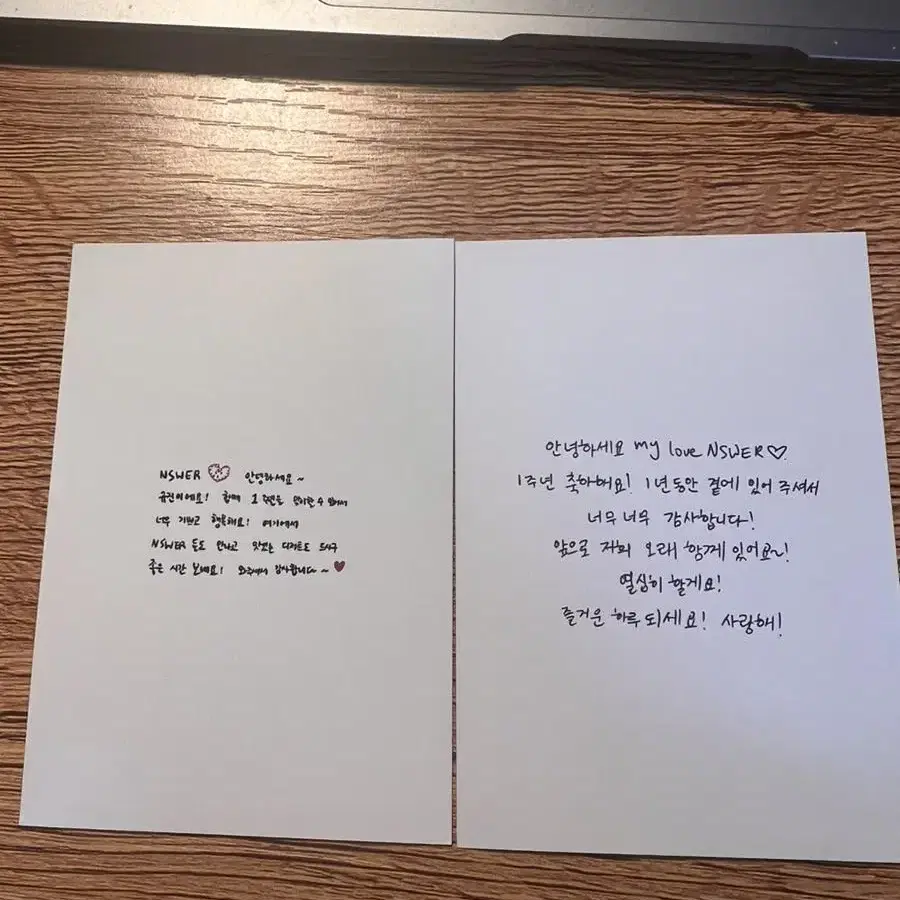 NSWER ♡ 안녕하세요~
규진이에요! 함께 1주년을 맞이할 수 있어서
너무 기쁘고 행복해요! 여기에서
NSWER 들도 만나고 맛있는 디저트도 드시구
좋은 시간 보내요! 와주셔서 감사합니다~ ♥
안녕하세요 my love NSWER♡
1주년 축하해요! 1년동안 곁에 있어 주셔서
너무 너무 감사합니다!
앞으로 저희 오래 함께 있어요~!
열심히 할게요!
즐거운 하루 되세요! 사랑해!